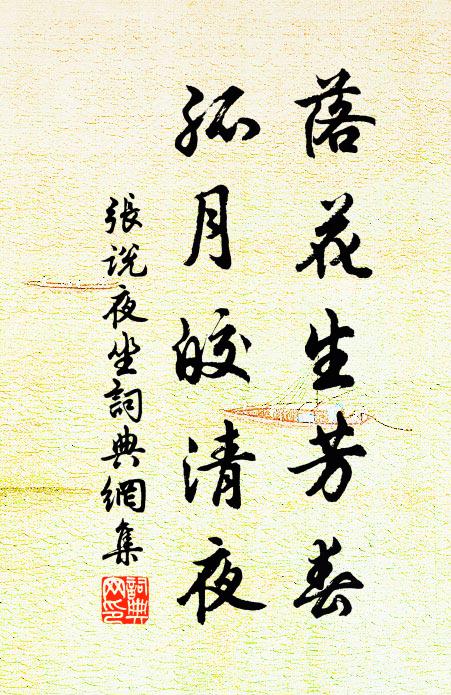 落花生芳春
孤月皎清夜
張说夜坐詞典網集
詞典網印